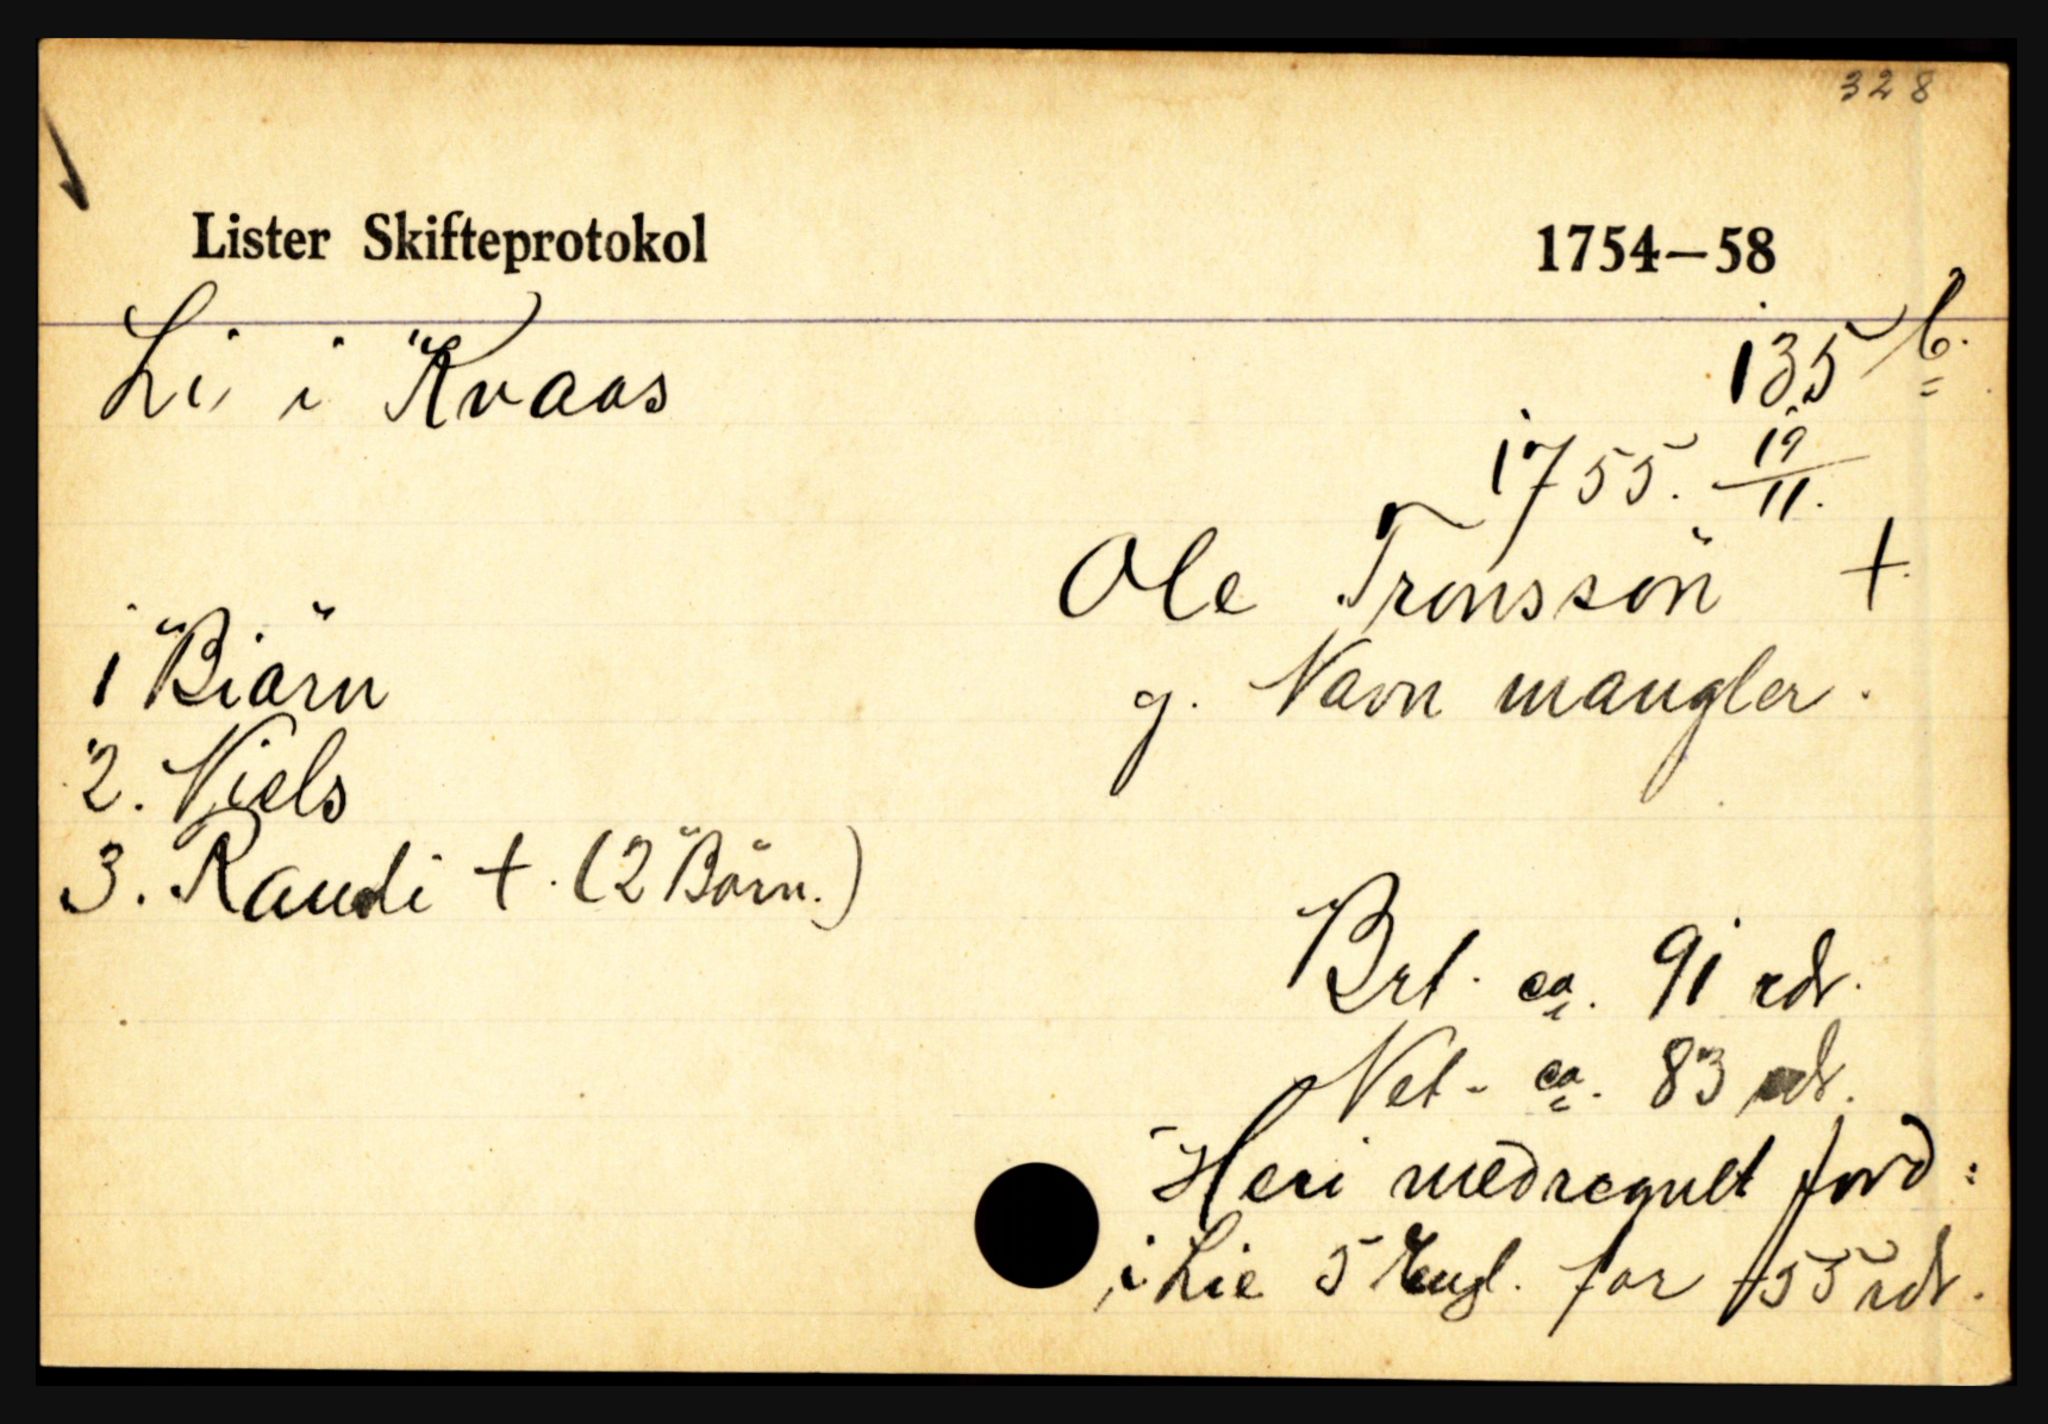 328
Lister Skifteprotokol 1754–58
Li i Kvaas
135 b.
1755. 19/11.
Ole Tronssön +.
g. Navn mangler.
1 Biörn
2. Niels
3. Raudi +. (2 Börn.)
Brt. ca. 91 rdr.
Net- ca. 83 rdr.
Heri medregnet jord:
i Lie 5 Eugl. for 55 rdr.